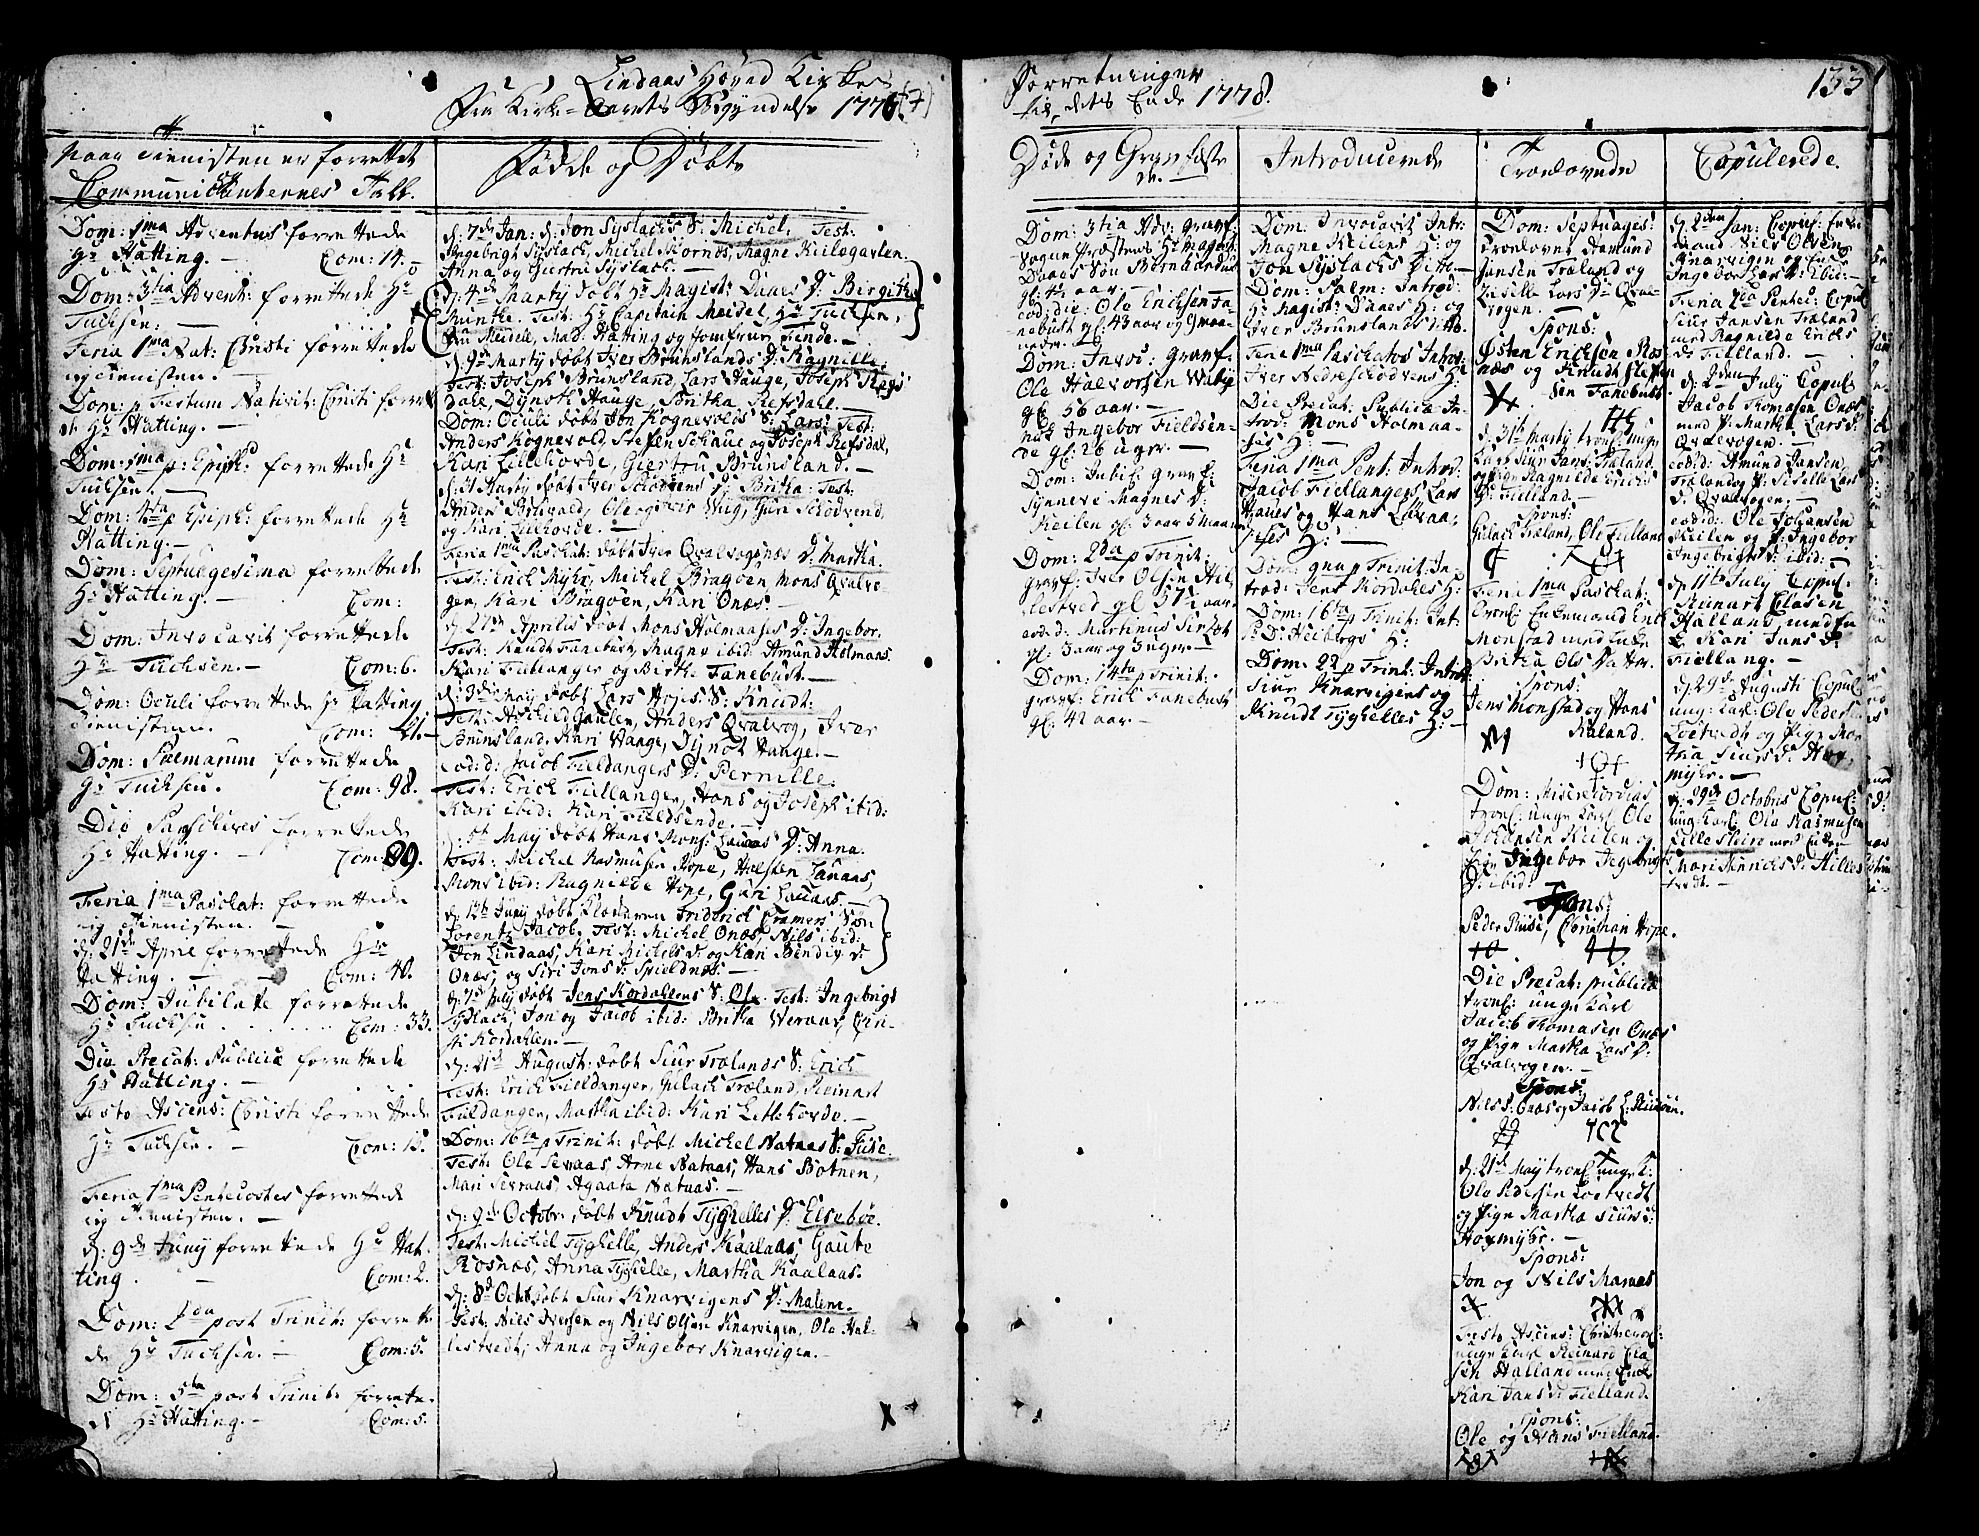 Lindaas Hoved Kirkes
Fra Kirke-Aarets Begyndelse 1776 (7)
Naar Tienisten er forrettet
Communicanternes Tall.
Dom: 1ma Adventus forrettede
Hr Hatting. — Com: 14. —
Dom: 3tia Advent: forrettede Hr
Tuchsen. —
Feria 1ma Nat: Christi forrettede
ieg tienisten. —
Dom: p Festum Nativit: Christi forret
de Hr Hatting. —
Dom: 1ma p: Epiph: forrettede Hr
Tuchsen. —
Dom: 4ta p Epiph: forrettede Hr
Hatting. —
Dom: Septuagesima forrettede
Hr Hatting. — Com:
Dom: Invocavit forrettede
Hr Tuchsen. — Com: 6.
Dom: Oculi forrettede Hr Hatting
tienisten. Com: 21. —
Dom: Palmarum forrettede
Hr Tuchsen. Com: 98.
Die forrettede
Hr Hatting. — Com: 89.
Feria 1ma Paschat: forrettede
ieg tienisten. —
d: 21de April forrettede Hr
Hatting. — Com: 40.
Dom: Jubilate forrettede
Hr Tuchsen . . . . . Com: 33.
Die Precat: Publica forrettede
Hr Hatting. —
Festo Ascens: Christi forrettede
Hr Tuchsen. — Com: 15.
Feria 1ma Pentecostes forrettede
ieg tienisten. —
d: 9de Juny forrettede Hr Hat-
ting. — Com: 2.
Dom: 2da post Trinit: forrette
de Hr Tuchsen. — Com: 5.
Dom: 5ta post Trinit: forrette-
de Hr Hatting. — Com: 5.
Fødde og Døbte
d: 7de Jan: d: Jon Syslachs S: Michel. Test:
Ingebrigt Syslach, Michel Kiornøs, Magne Kielegavlen,
Anna og Gurtri Syslach. —
d: 4de Marty døbt Hr Magist: Danes D: Birgitha
Minthe. Test: Hr Capitain Meidel, Hr Tuchsen,
Fru Meidell, Mad. Hatting og Jomfrue Finde. —
d: 9de Marty døbt Iver Brunslands D: Ragnille.
Test: Joseph Brunsland, Lars Hauge, Joseph Refs
dale, Dynoth Hauge, Britha Refsdahl. —
Dom: Oculi døbt Jon Kognevolds S: Lars: Test:
Anders Kognevold, Steffen Schaue og Joseph Refsdal,
Kari Lillehovde, Giertru Brunsland. —
d: Marty døbt Iver D: Britha. Test:
Ander Ole og Iver Wiig, Guri Schodvend
og Kari Lillehovde. —
Feria 1ma Paschat: døbt Iver Qvalvogsnæs D: Martha.
Test: Erich Myhr, Michel Bragøen, Mons Qvalvo-
gen, Kari Bragøen, Kari Onæs. —
d: 27de Aprilis døbt Mons Holmaases D: Ingebor.
Test: Knudt Fanebust, Magne ibid: Amund Holmaas.
Kari Fieldanger og Birthe Fanebust. —
d: 3die May døbt Lars Hopes S: Knudt:
Test: Aschild Gaulen, Anders Qvalvog, Iver
Brunsland. Kari Hauge, Dynot Hauge. —
eod: d: Jacob Fieldangers D: Pernille.
Test: Erich Fiellanger, Hans og Joseph ibid:
Kari ibid: Kari Fieldsende. —
d: 5te May døbt Hans Mons: Lauaas D: Anna.
Test: Michel Rasmusen Hope, Halsten Lauaas,
Mons ibid: Ragnilde Hope, Guri Lauaas. —
d: 12te Juny døbt Friderich Cramers Søn
Lorentz Jacob. Test: Michel Onæs, Nils ibid:
Jon Lindaas, Kari Michels D: og Kari Bendig D:
Onæs, og Siri Jons D: Spieldnæs. —
d: 7de July døbt Jens Kordahlens S: Ole. Test: Ingebrigt
Syslach, Jon og Jacob ibid: Britha Weraas,
Kordahlen. —
d: 21de August: døbt Siur Trælands S: Erich
Test: Erich Fieldanger, Gulach Træland, Reinart
Fieldanger, Martha ibid: Kari Lillehovde. —
Dom: 16ta p Trinit: døbt Michel Nataas S:
Test: Ole Sevraas, Arne Nataas, Hans Botnen,
Mari Sevraas, Agaata Nataas. —
d: 9de Octobr: døbt Knudt Tyghelles D: Elsebøe.
Test: Michel Tyghelle, Anders Kaalaas, Gaute
Rosnæs, Anna Tyghelle, Martha Kaalaas.
d: 8de Octob: døbt Siur Knarvigens D: Malene.
Test: Nils Iversen og Nils Olsen Knarvigen, Ole Hil-
lestvedt, Anna og Ingebor Knarvigen. —
Forretninger
til dets Ende 1778.
133
Døde og Græsfæste
de.
Dom: 3tia Adv: Græsf:
Sogne Præstens Hr Magist:
Danes Søn Bernhardus
gl: 4 aar. —
eod: die: Ole Erichsen Fa-
nebust gl: 43 aar og 9 maa-
neder.
Dom: Invoc: Græsf:
Ole Halvorsen
gl: 56 aar. —
Ingebor Fieldsen-
de gl: 26 uger. —
Dom: Jubil: Græsf:
Synneve Magnes D:
Keilen gl: 3 aar 5 maaneder
Dom: 2da p Trinit:
Græsf: Iver Olsen Hil-
lestved gl 57 aar
eod: d: Martinus
gl: 3 aar og 3 uger. —
Dom: 14ta p Trinit:
Græsf: Erich Fanebust
gl: 42 aar. —
Introducerede
Dom: Invocavit Intr:
Magne Keilens H: og
Jon Syslachs Ditto —
Dom: Palm: Introd:
Hr Magist: Danes H: og
Iver Brunslands ditto.
Feria 1ma Paschatos Introd:
Iver H:
Die Precat: Publica In-
trod: Mons Holmaa-
ses H: —
Feria 1ma Pent: Introd:
Jacob Fiellangers Lars
Hopes og Hans Lauaa-
ses H: —
Dom: p Trinit: In-
trod: Jens Kordales H:
Dom: 16ta p Trinit: Int:
H:
Dom: 22 p Trinit: Introd
Siur Knarvigens og
Knudt Tyghelles H: —
Troelovede
Dom: Septuages:
troelovet Aamund
Jansen Træland og
Siselle Lars Dr Qval-
vogen. —
Spons:
Østen Erichsen Ros-
næs og Knudt Steffen
sen Fanebust.
d: 31te Marty trol: unge
Karl Siur Jans: Træland
og Pige Ragnilde Erichs
D: Fielland. —
Spons:
Gulach Træland, Ole Fielland
Feria 1ma Paschat:
Trol: Enkemand
Monstad med Enke
Britha Ols Datter.
Spons:
Jens Monstad og Hans
Kaland.
Dom: Misericordias
trol: unge Karl Ole
Johansen Keilen og
Pige Ingebor Ingebrigts
D: ibid:
Spons:
Peder Christian Hope.
Die Precat: publica
trol: unge Karl
Jacob Thomasen Onæs
og Pige Martha Lars D:
Qvalvogen. —
Spons:
Nils S: Onæs og Jacob
d: 21de May trol: unge K:
Ole Pedersen Loetvedt
og Pige Martha Siurs D:
Hopmyhr. —
Spons:
Jon og Nils Maraas
Festo Ascens: Christi trol:
unge Karl Reinard Cla
sen Halland med Enke
Kari Jans D: Fielland.
Spons:
Ole og Hans Fielland.
Copulerede.
d: 2den Jan: Copul: Enke
mand Nils Olsen
Knarvigen og Enke
Ingebor ibid: —
Feria 2da Pentec: Copul:
Siur Jansen Træland
med Ragnilde Erichs
D: Fielland. —
d: 2den July Copul:
Jacob Thomasen Onæs
med P: Martha Lars D:
Qvalvogen. —
eod: d: Amund Jansen
Træland og P: Siselle Lars
D: Qvalvogen. —
eod: d: Ole Johansen
Keilen og P: Ingebor
Ingebrigts D: ibid: —
d: 11te July Copul:
Reinart Clasen
Halland med En
ke Kari Jans D:
Fiellang. —
d: 29de Augusti Copul:
ung: Karl: Ole Peders:
Loetvedt og Pige Mar
tha Siurs D: Hop-
myhr. —
d: 29de Octobris Copul:
ung Karl Ole Rasmusen
Lille med Enke
Mari Hinrichs D: Hilles
tvedt. —